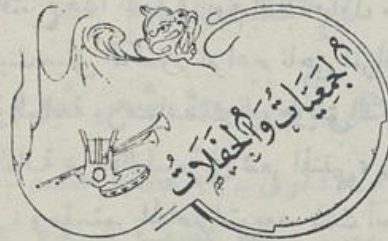 الجَمْعِيَّاتُ وَالحَفَلَاتُ